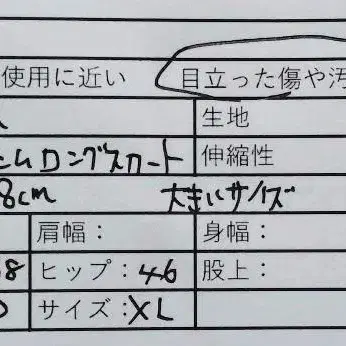 使用に近い 目立った傷や汚
生地
ニムロングスカート 伸縮性
8cm 大きいサイズ
肩幅： 身幅：
8 ヒップ：46 股上：
サイズ：XL